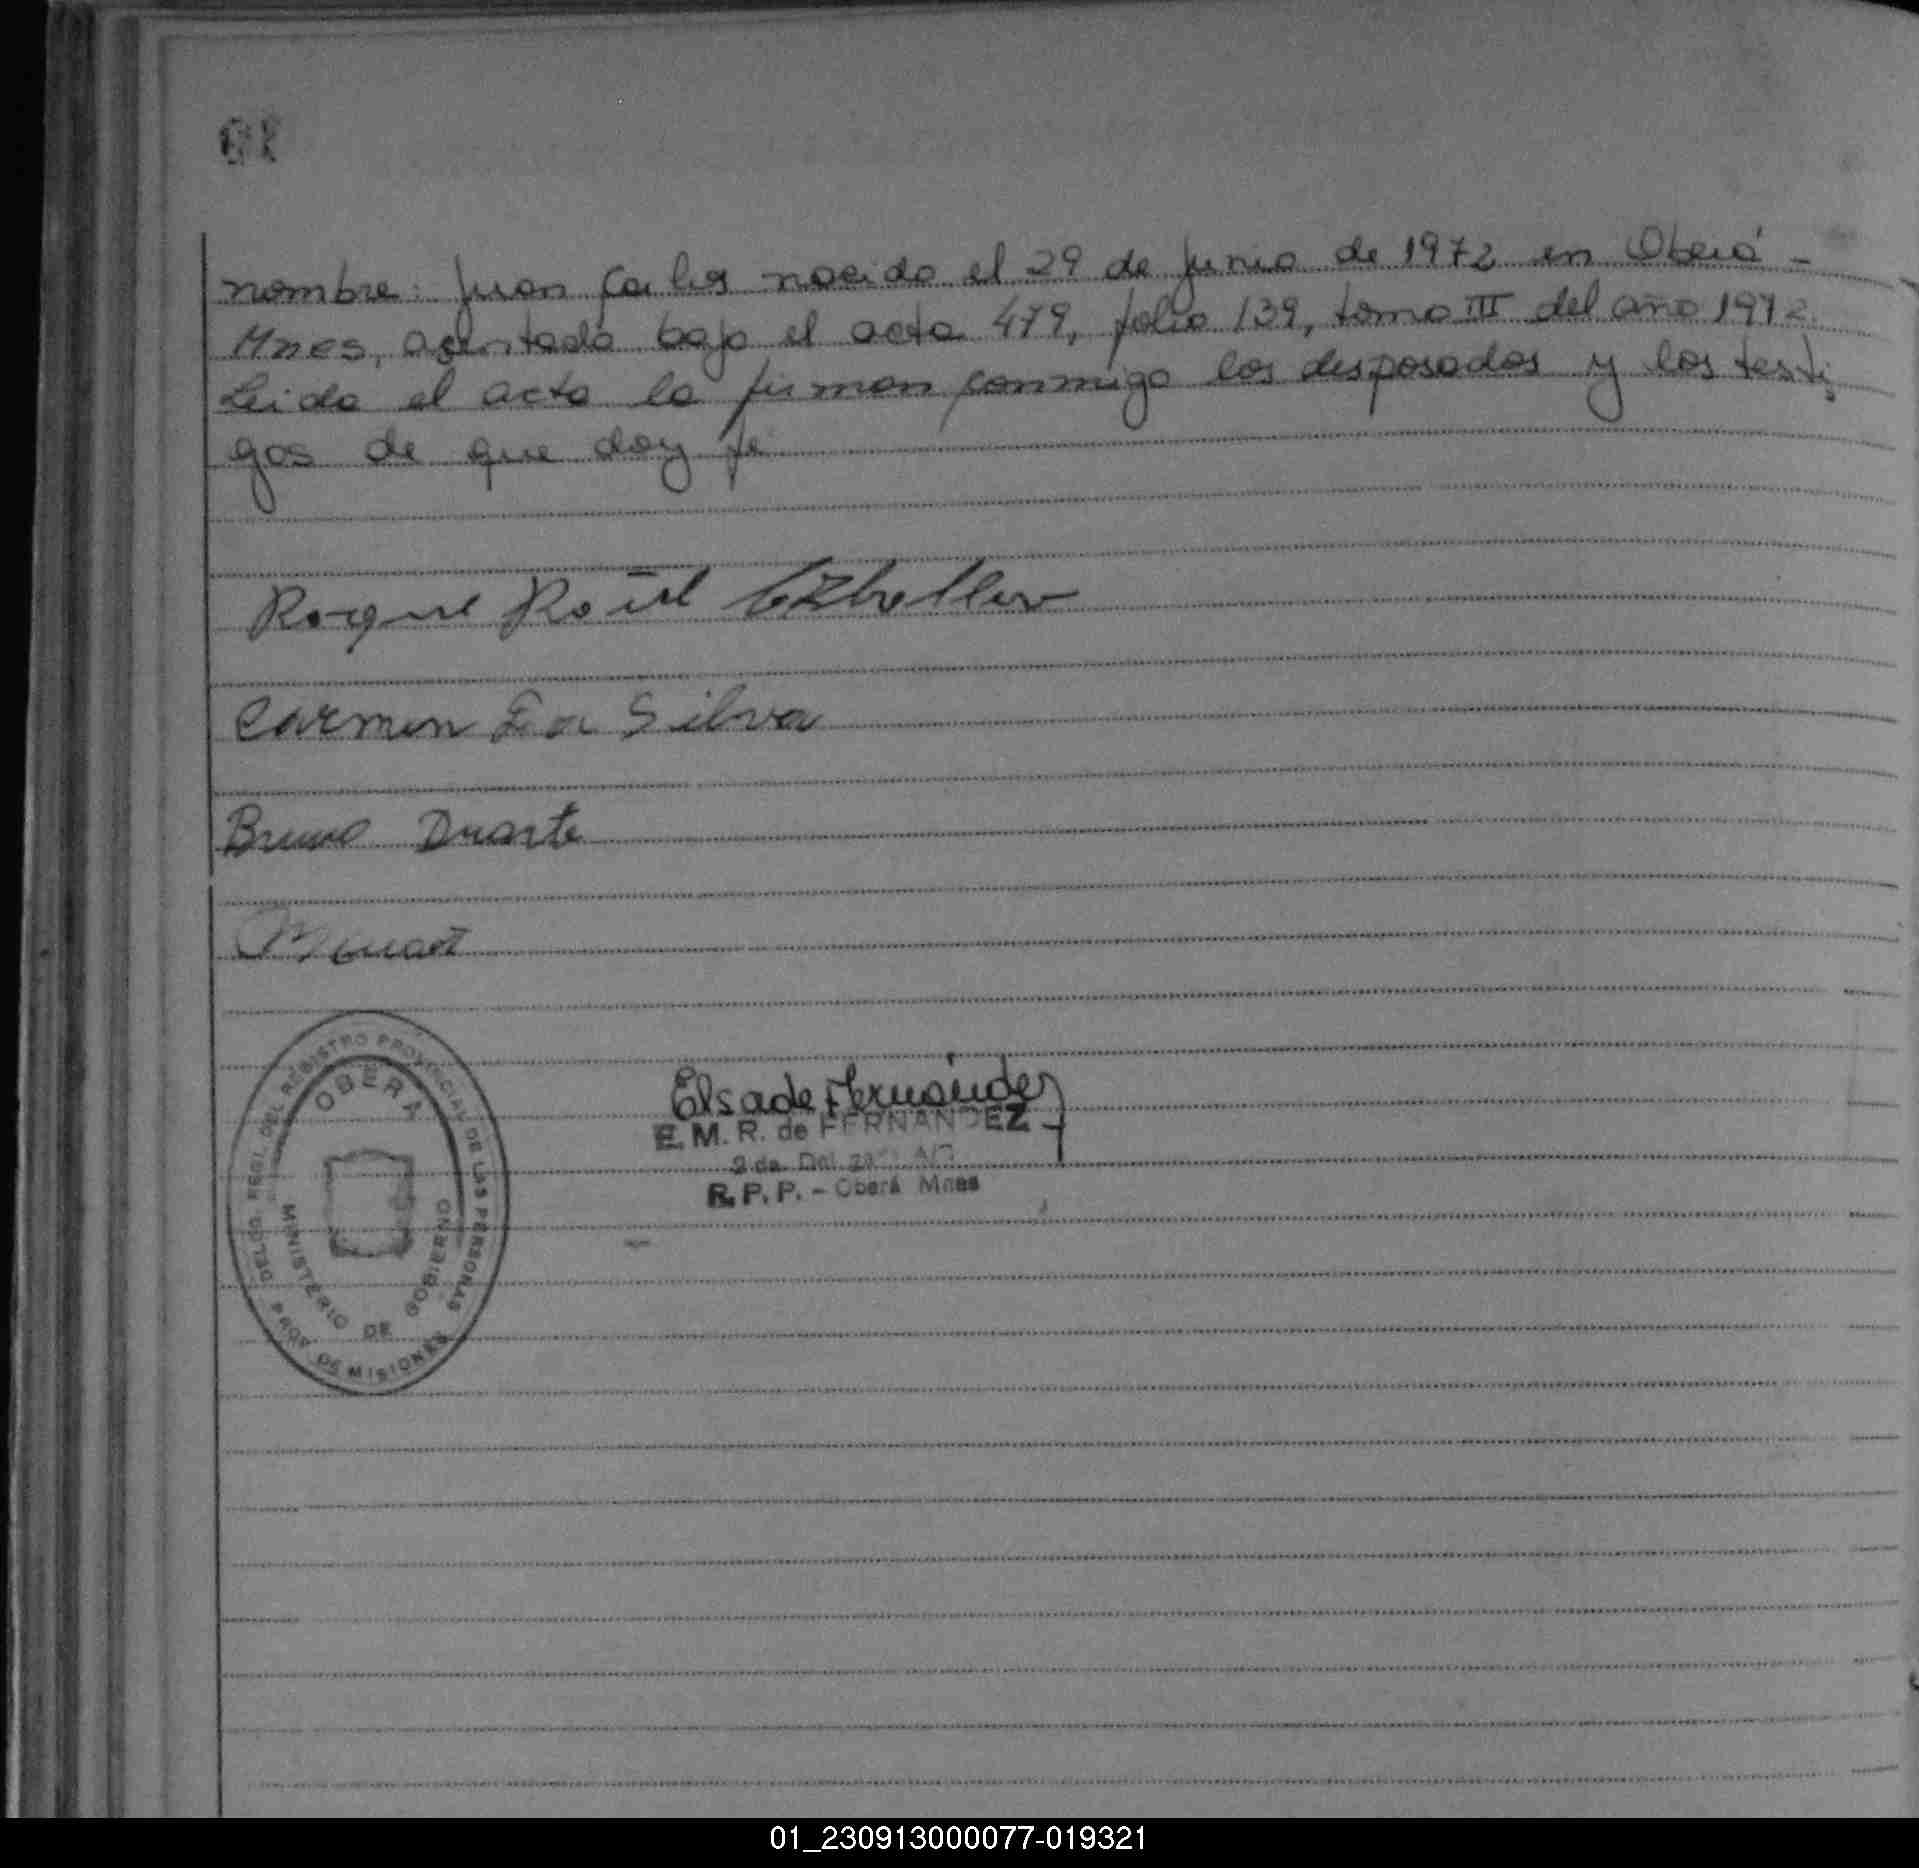 nombre: Juan Carlos nacido el 29 de Junio de 1972 en Oberá -
Mnes, asentada bajo el acta 479, folio 139, tomo III del año 1972.
Leida el acta la firman conmigo los desposados y los testi
gos de que doy fe
Roque Raúl
Carmen Da Silva
Bruno Duarte
Elsa de Fernández
E. M. R. de FERNANDEZ
R. P. P. - Oberá Mnes
DELEG. REGL. DEL REGISTRO PROVINCIAL DE LAS PERSONAS
OBERA
MINISTERIO DE GOBIERNO
PROV. DE MISIONES
01_230913000077-019321